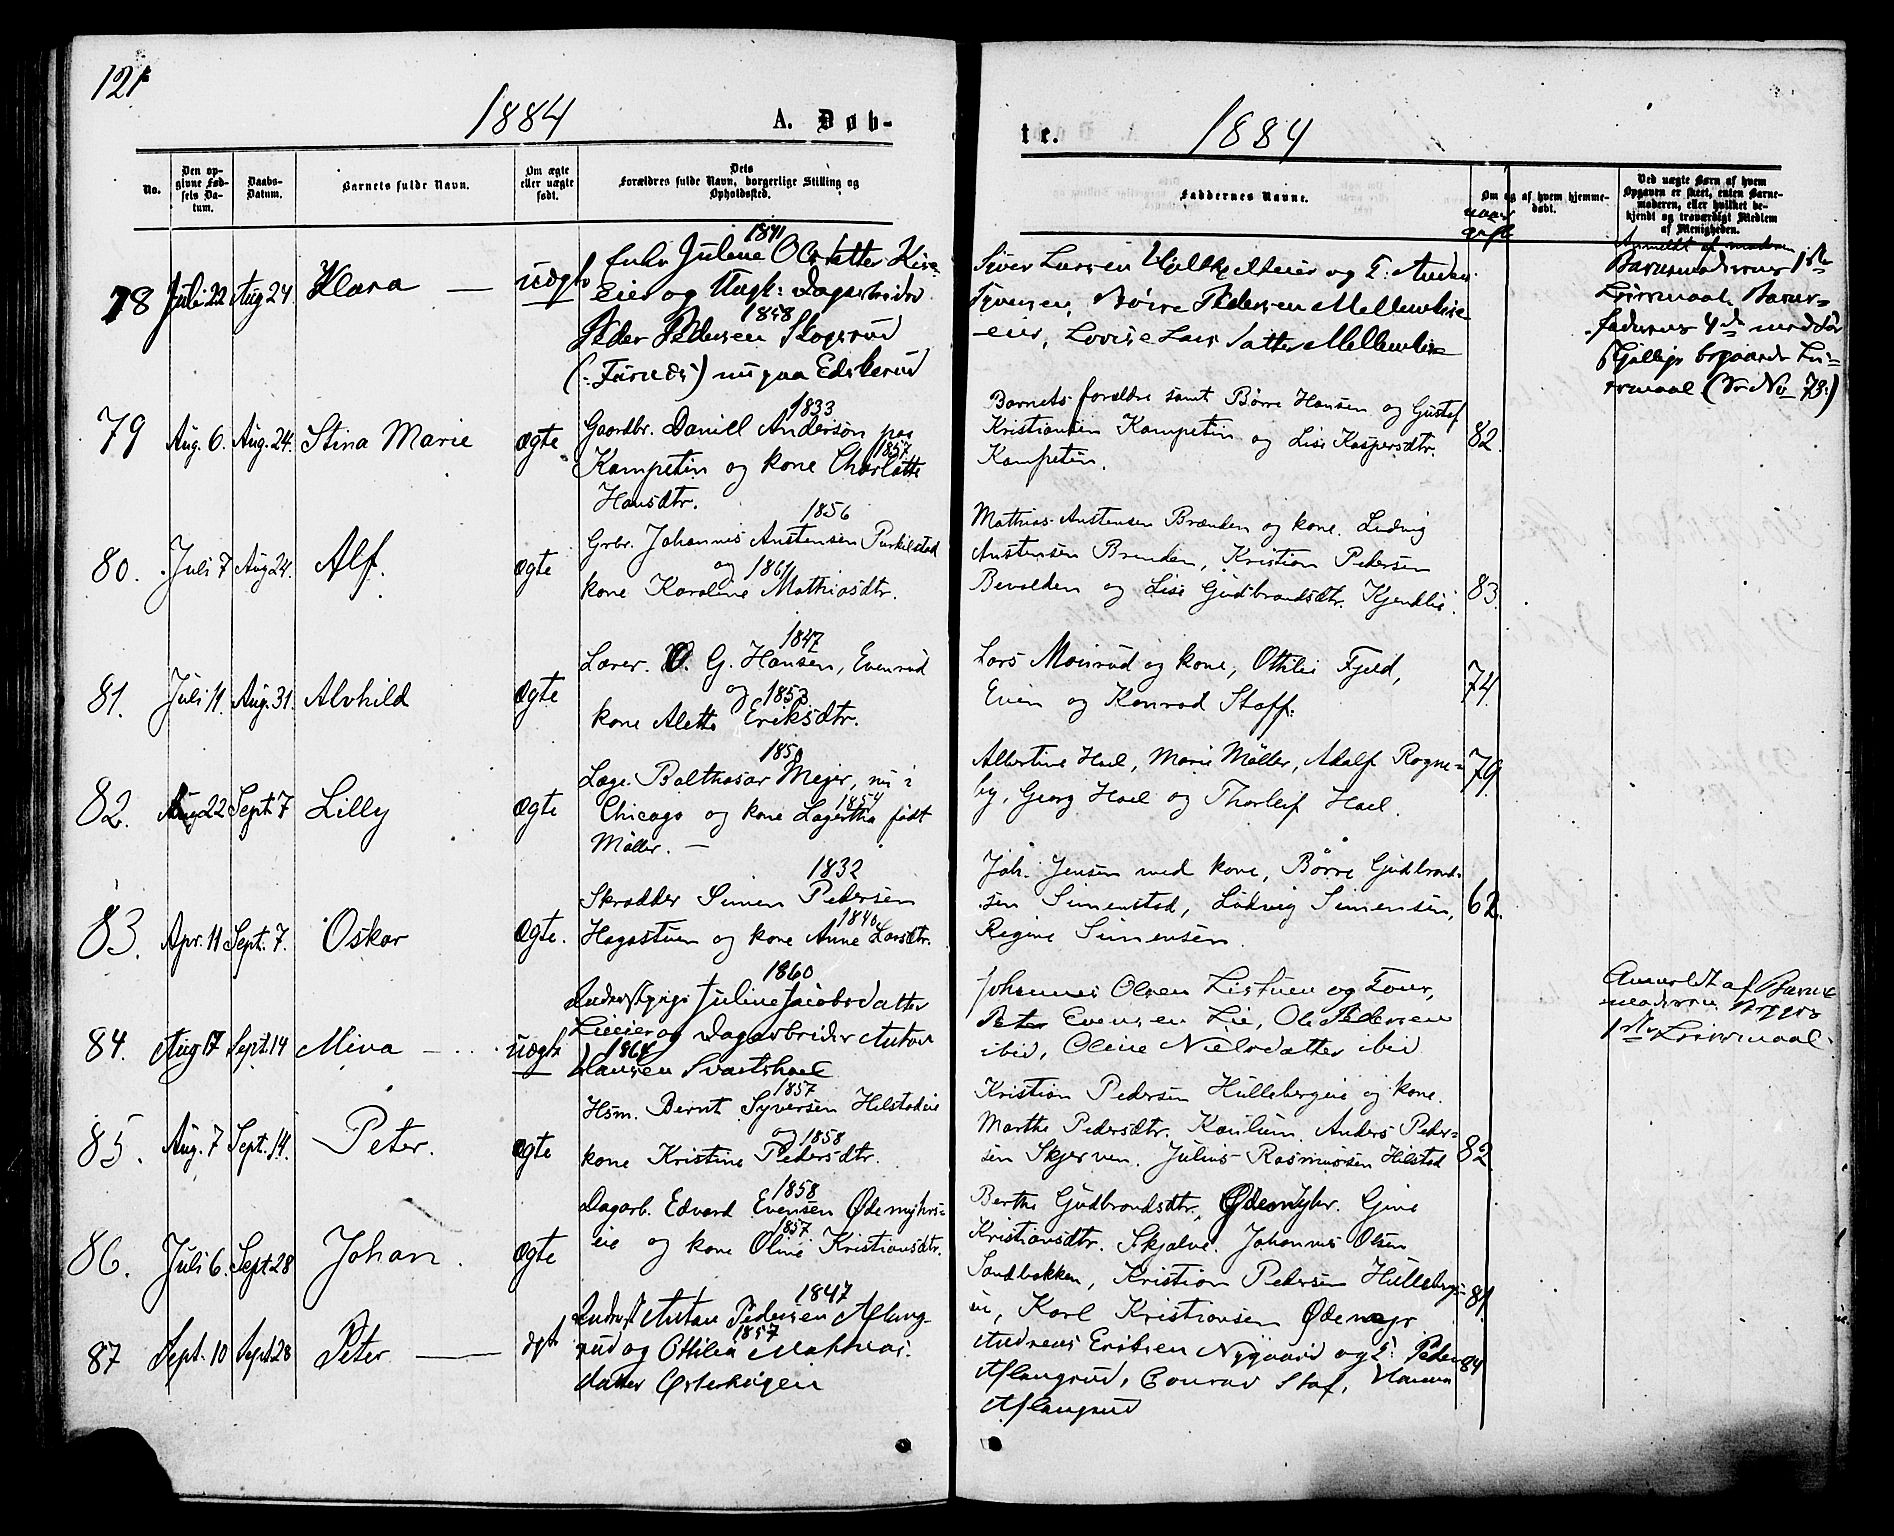 121
1884
A. Døb-
te.
1884
No.
Den op-
givne Fød-
sels Da-
tum.
Daabs-
Datum.
Barnets fulde Navn.
Om ægte
eller uægte
født.
Dets
Forældres fulde Navn, borgerlige Stilling og
Opholdssted.
Faddernes Navne.
Om og af hvem hjemme-
døbt.
Ved uægte Børn af hvem
Opgaven er skeet, enten Barne-
moderen, eller hvilket be-
kjendt og troværdigt Medlem
af Menigheden.
78 Juli 22 Aug 24 Klara — uægte
1841
Enke Juline Olsdatter
eie og Ungk: Dagarbeider
1858
Peder Pedersen Skogsrud
(: Furnæs) nu paa
Syver Larsen
Pedersen
Lovise Lars datter
Anmeldt af moderen
Barnemoderens 1ste
Leiermaal. Barne-
faderens 4de
(Nr. 73.)
79 Aug. 6. Aug. 24. Stina Marie ægte
1833
Gaardbr. Daniel Anderson paa
1857
Kampetin og kone Charlotte
Hansdtr.
Barnets forældre samt Børre Hansen og Gustaf
Kristiansen Kampetin og Lise Kaspersdtr.
Kampetin.
82.
80. Juli 7 Aug 24. Alf. ægte
1856
Grbr. Johannes Austensen Purkilstad
og 1861
kone Karoline Mathiasdtr.
Mathias Austensen Brænden og kone. Ludvig
Austensen Brenden, Kristian Pedersen
og Lise Gudbrandsdtr. Kjendlie.
83.
81. Juli 11. Aug. 31. Alvhild ægte
1847
Lærer. O. G. Hansen, Evenrud
og 1853
kone Alette Eriksdtr.
Lars Moinrud og kone, Ottilie Fjeld,
Even og Konrad Staff.
74.
82. Aug 22 Sept. 7 Lilly ægte
1850
Læge Balthasar Mejer, nu i
1854
Chicago og kone Lagertha født
Møller. —
Albertine Hoel, Marie Møller, Adolf Rogne-
by, Georg Hoel og Thorleif Hoel.
79.
83. Apr. 11 Sept. 7. Oskar ægte.
1832
Skrædder Simen Pedersen
1840
Hagastuen og kone Anne Larsdtr.
Joh. Jensen med kone, Børre Gudbrand-
sen Simenstad, Ludvig Simensen,
Regine Simensen.
62.
84. Aug 17 Sept. 14 Mina — uægte
1860
Juline Jacobsdatter
Lieeie og Dagarbeider Anton
1864
Hansen Svartshoel
Johannes Olsen Listuen og
Peter Evensen Lie, Ole Pedersen
ibid, Oline Nielsdatter ibid
Anmeldt af Barne-
moderen Begges
1ste Leiermaal.
85. Aug. 7 Sept. 14. Peter. ægte
1857
Hsm. Bernt Syversen Helstadeie
og 1858
kone Kristine Pedersdtr.
Kristian Pedersen Hullebergeie og kone.
Marthe Pedersdtr. Anders Peder-
sen Skjerven. Julius Rasmussen Helstad
82
86. Juli 6. Sept. 28 Johan. ægte
1858
Dagarb. Edvard Evensen Ødemyhrs-
1857
eie og kone Oline Kristiansdtr.
Berthe Gudbrandsdtr. Ødemyhr. Gine
Kristiansdtr. Skjølve. Johannes Olsen
Sandbakken, Kristian Pedersen Hulleberg-
eie, Karl Kristiansen Ødemyr
81.
87 Sept. 10 Sept 28 Peter — ægte
1847
Anton Pedersen Aflang-
1857
rud og Ottilia Mathias-
datter Østerhagen
Andreas Eriksen Nygaard og Peder
Aflangrud, Conrad Staf, Hanna
Aflangrud
84